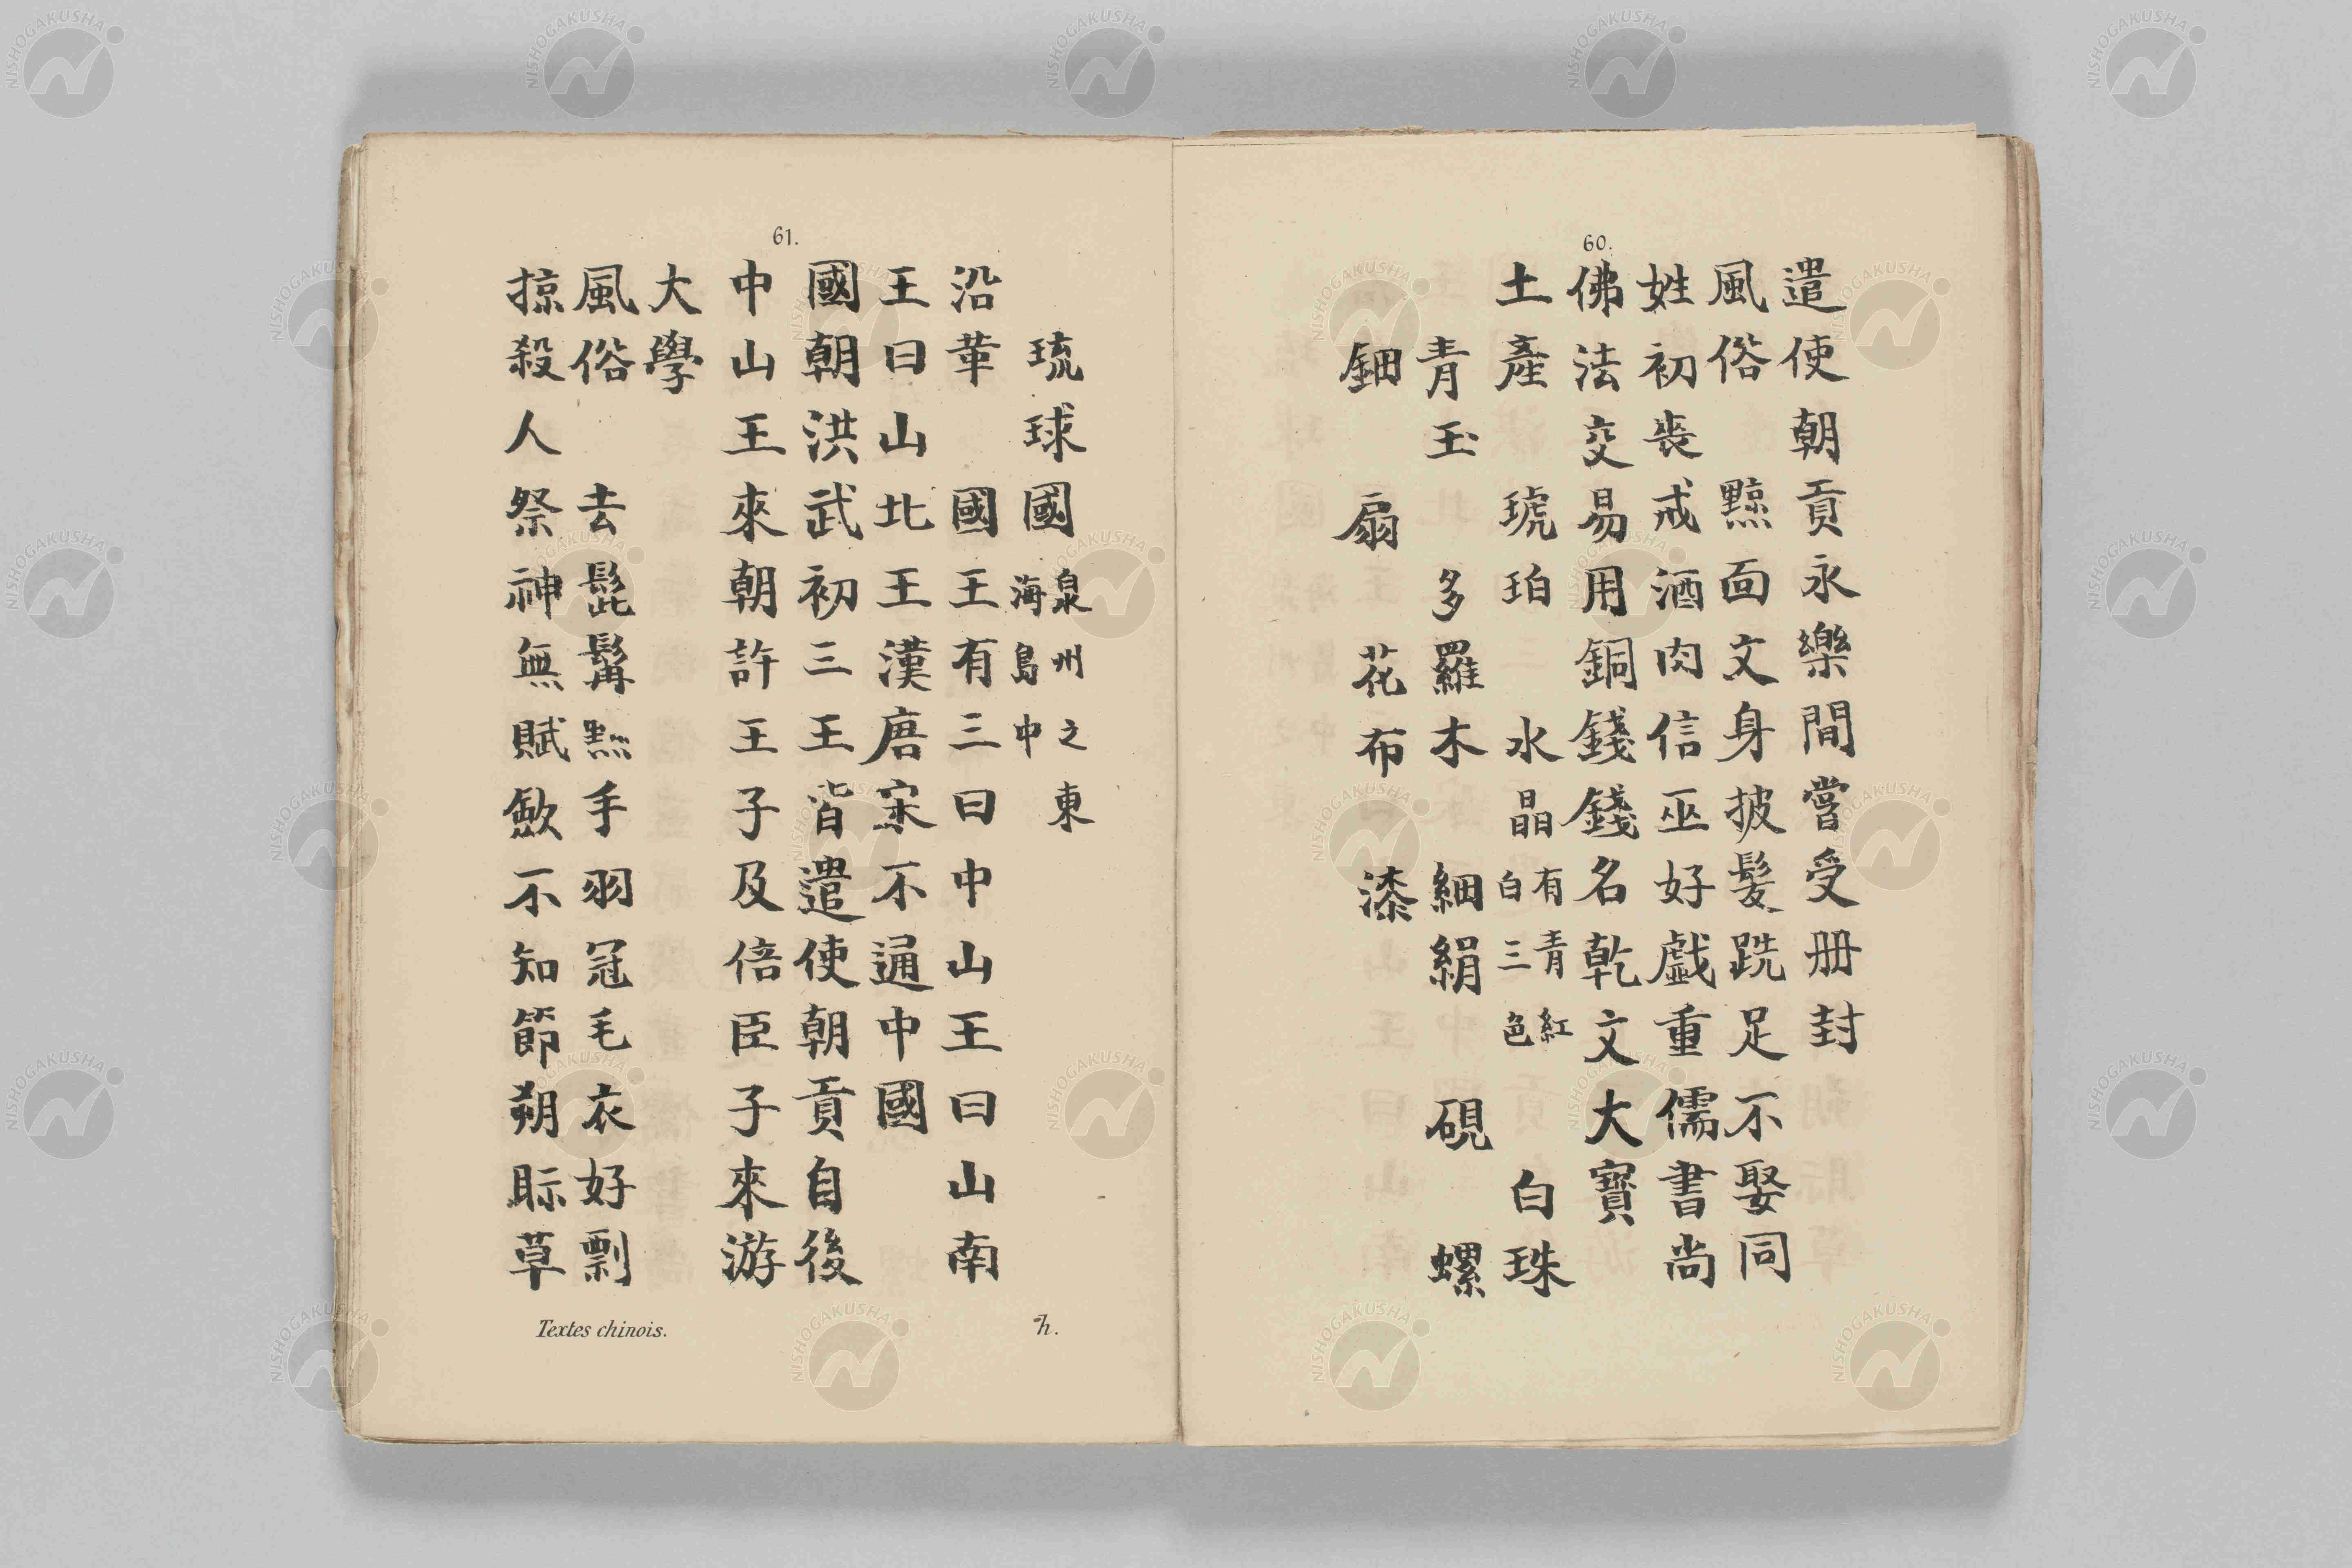 60.
遣使朝貢永樂間嘗受册封
風俗 黥面文身披髮跣足不娶同
姓初喪戒酒肉信巫好戲重儒書尚
佛法交易用銅錢錢名乾文大寶
土產 琥珀 水晶有青紅白三色 白珠
青玉 多羅木 細絹 硯 螺
鈿 扇 花布 漆
61.
琉球國泉州之東海島中
沿革 國王有三曰中山王曰山南
王曰山北王漢唐宋不通中國
國朝洪武初三王皆遣使朝貢自後
中山王來朝許王子及倍臣子來游
大學
風俗 去髭髯黥手羽冠毛衣好剽
掠殺人祭神無賦斂不知節朔眎草
Textes chinois.
h.
NISHOGAKUSHA